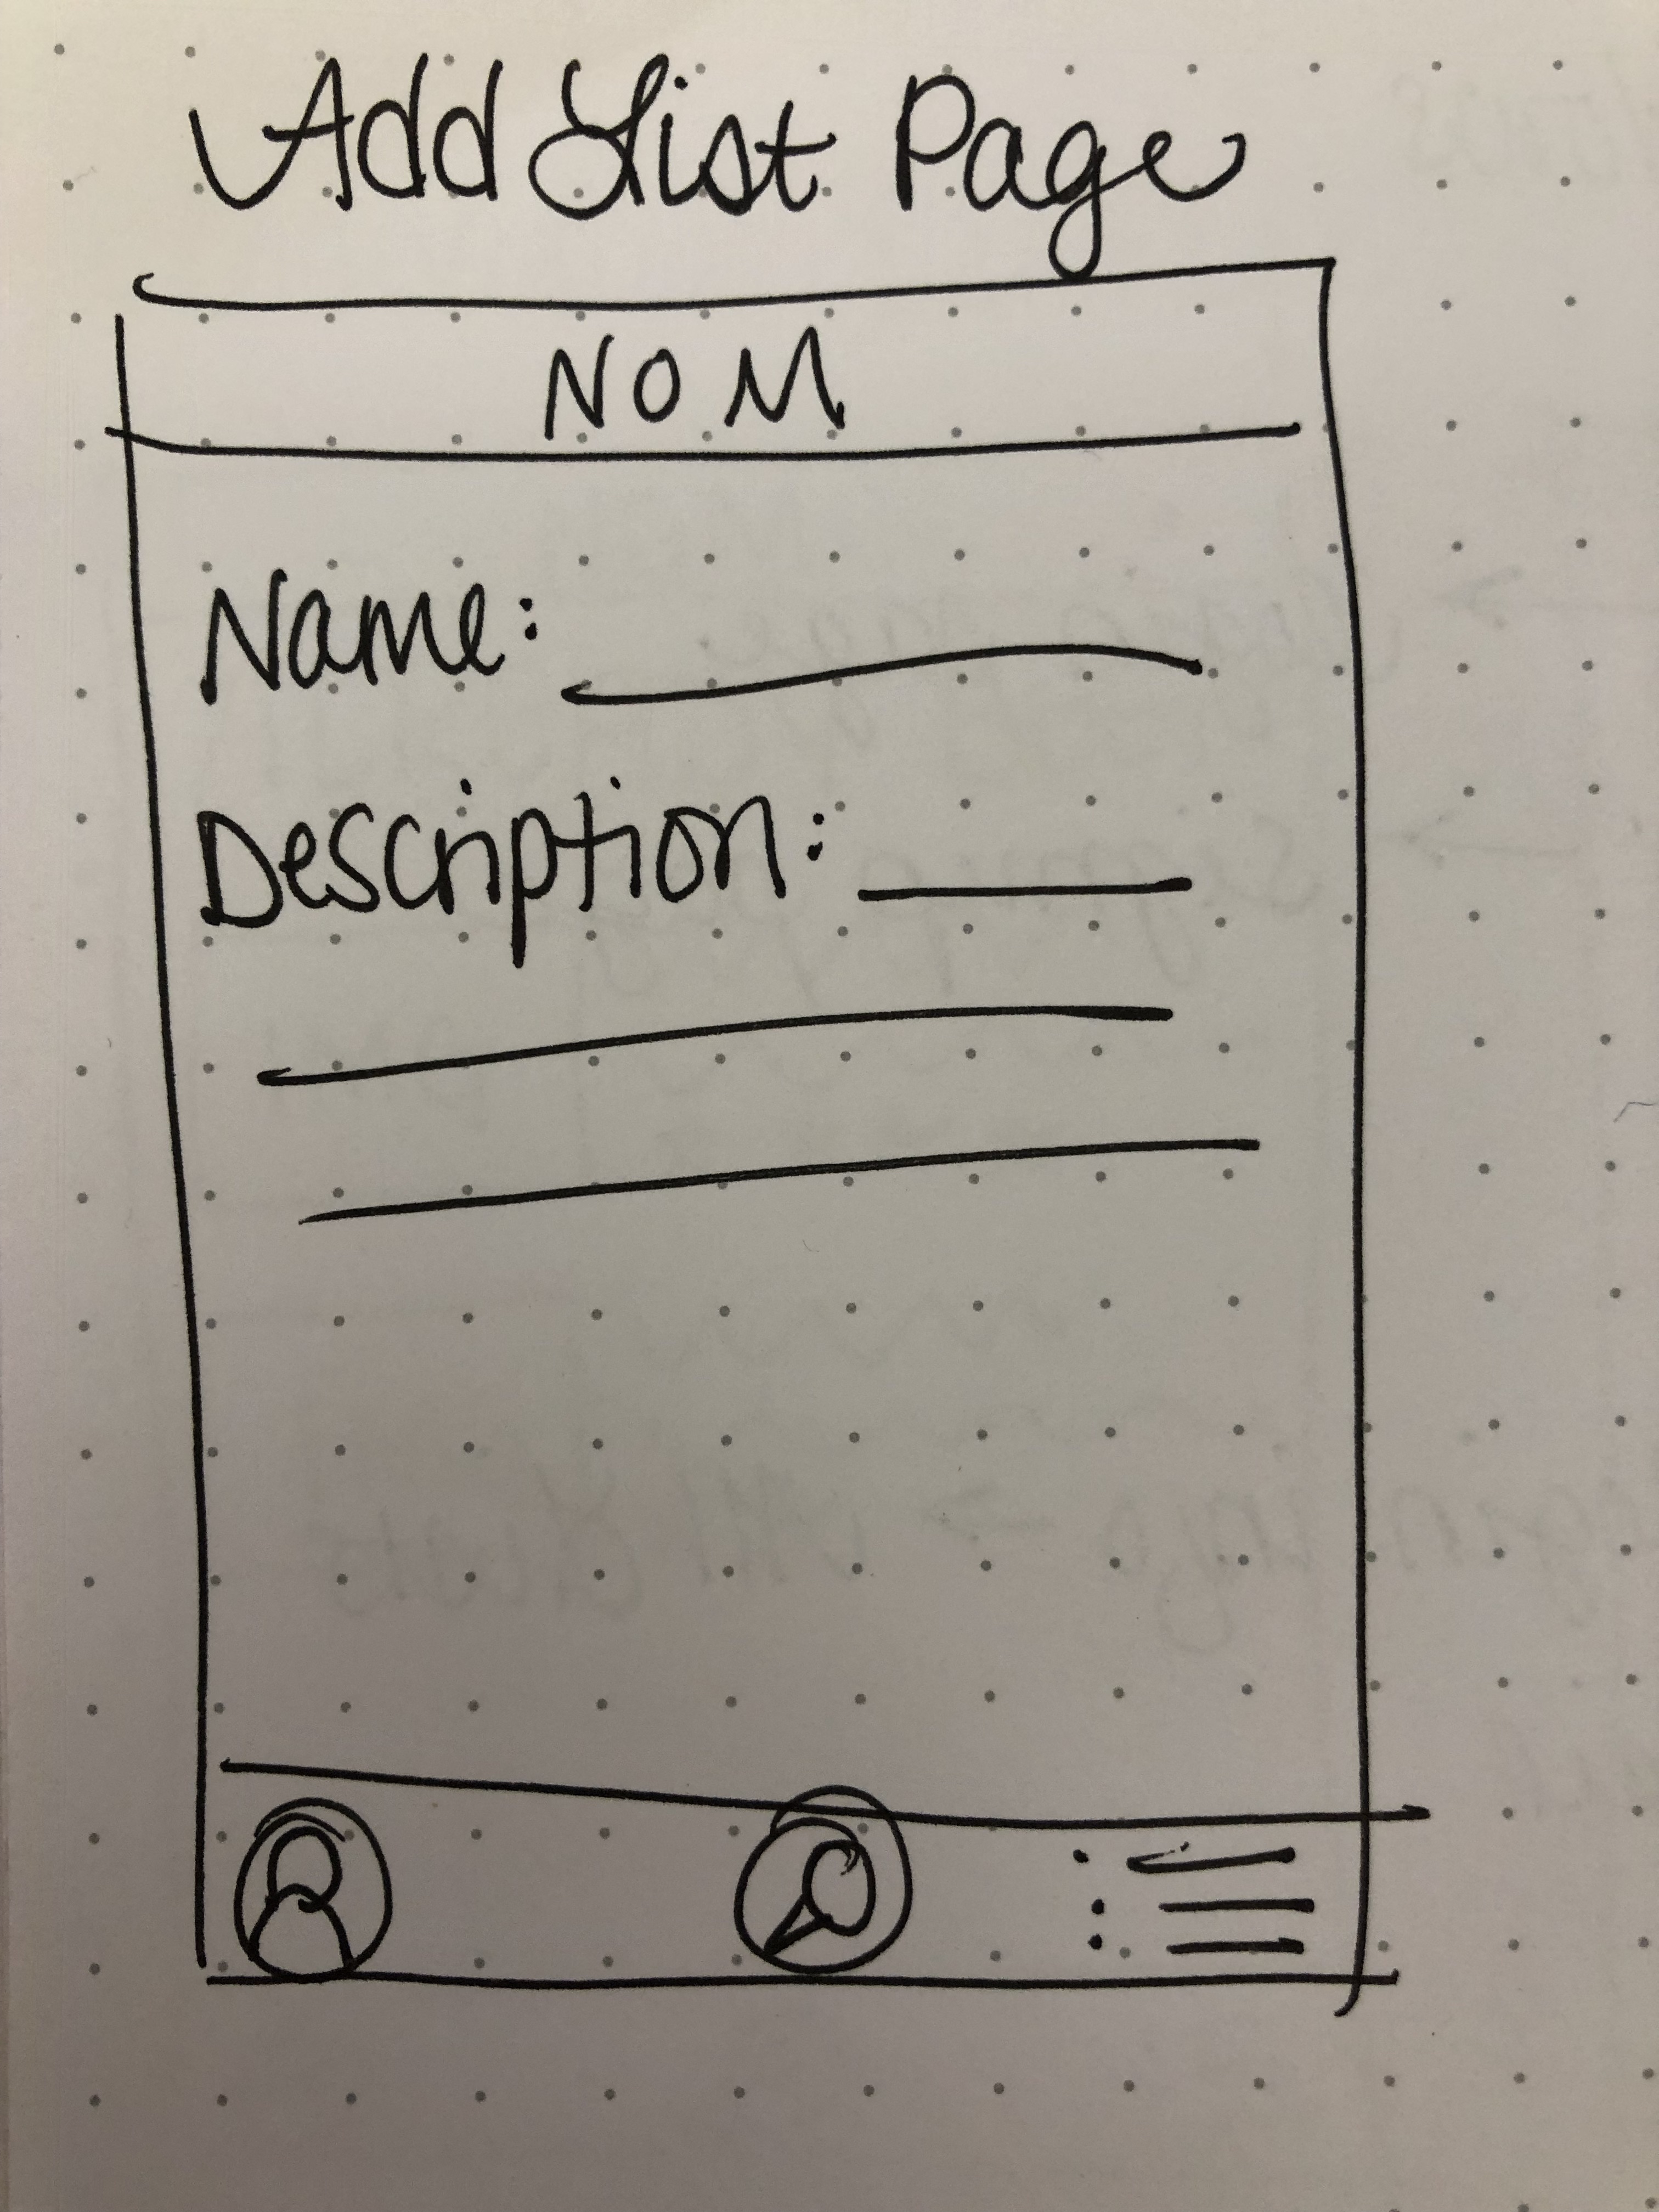 Add List Page
NOM
Name:
Description: